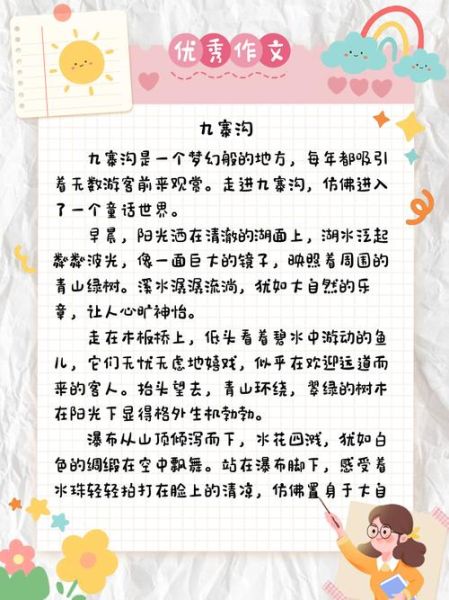 优秀作文
九寨沟
九寨沟是一个梦幻般的地方，每年都吸引
着无数游客前来观赏。走进九寨沟，仿佛进入
了一个童话世界。
早晨，阳光洒在清澈的湖面上，湖水泛起
粼粼波光，像一面巨大的镜子，映照着周围的
青山绿树。溪水潺潺流淌，犹如大自然的乐
章，让人心旷神怡。
走在木板桥上，低头看着碧水中游动的鱼
儿，它们无忧无虑地嬉戏，似乎在欢迎远道而
来的客人。抬头望去，青山环绕，翠绿的树木
在阳光下显得格外生机勃勃。
瀑布从山顶倾泻而下，水花四溅，犹如白
色的绸缎在空中飘舞。站在瀑布脚下，感受着
水珠轻轻拍打在脸上的清凉，仿佛置身于大自